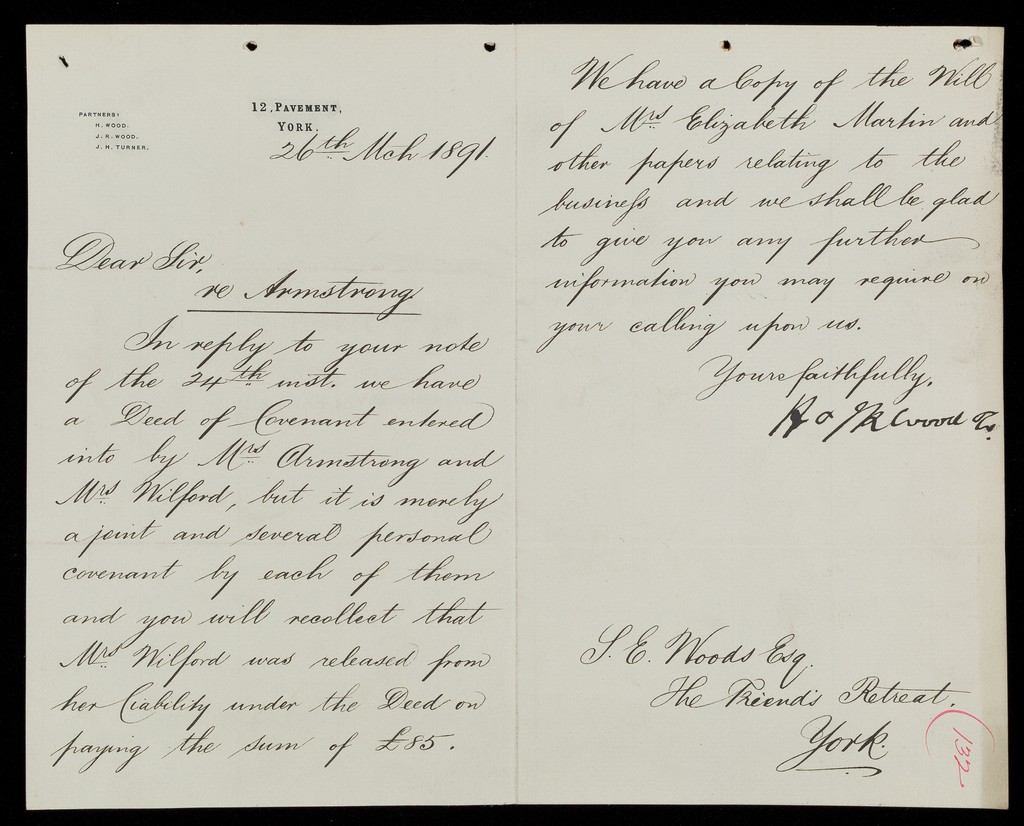 PARTNERS:
H. WOOD.
J. R. WOOD.
J. H. TURNER.
12, PAVEMENT,
YORK.
26th Mch 1891.
Dear Sir,
re Armstrong.
In reply to your note
of the 24th inst. we have
a Deed of Covenant entered
into by Mrs Armstrong and
Mrs Wilford, but it is merely
a joint and several personal
covenant by each of them
and you will recollect that
Mrs Wilford was released from
her liability under the Deed on
paying the sum of £85.
We have a Copy of the Will
of Mrs Elizabeth Martin and
other papers relating to the
business and we shall be glad
to give you any further
information you may require on
your calling upon us.
Yours faithfully,
H & JR Wood &Co.
S. E. Woods Esq.
The Friend's Retreat.
York.
132